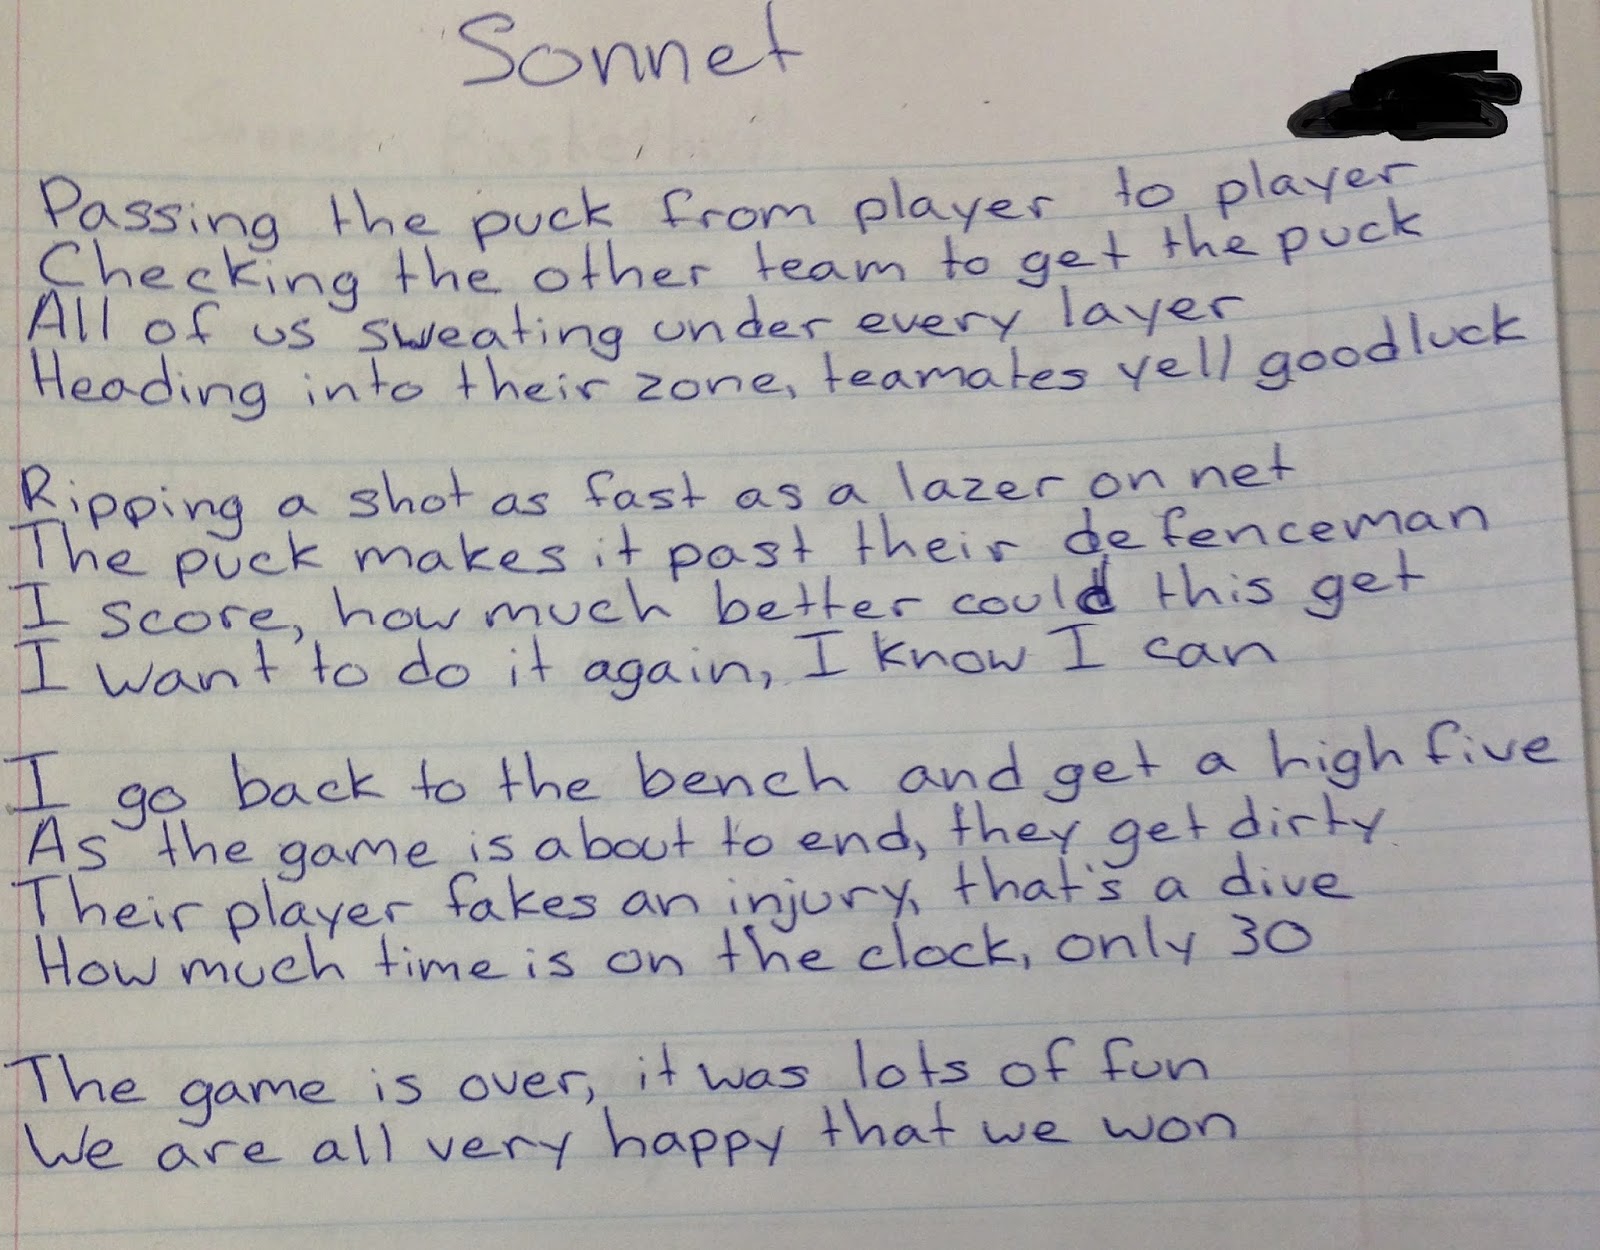 Sonnet
Passing the puck from player to player
Checking the other team to get the puck
All of us sweating under every layer
Heading into their zone, teamates yell goodluck
Ripping a shot as fast as a lazer on net
The puck makes it past their defenceman
I score, how much better could this get
I want to do it again, I know I can
I go back to the bench and get a high five
As the game is about to end, they get dirty
Their player fakes an injury, that's a dive
How much time is on the clock, only 30
The game is over, it was lots of fun
We are all very happy that we won